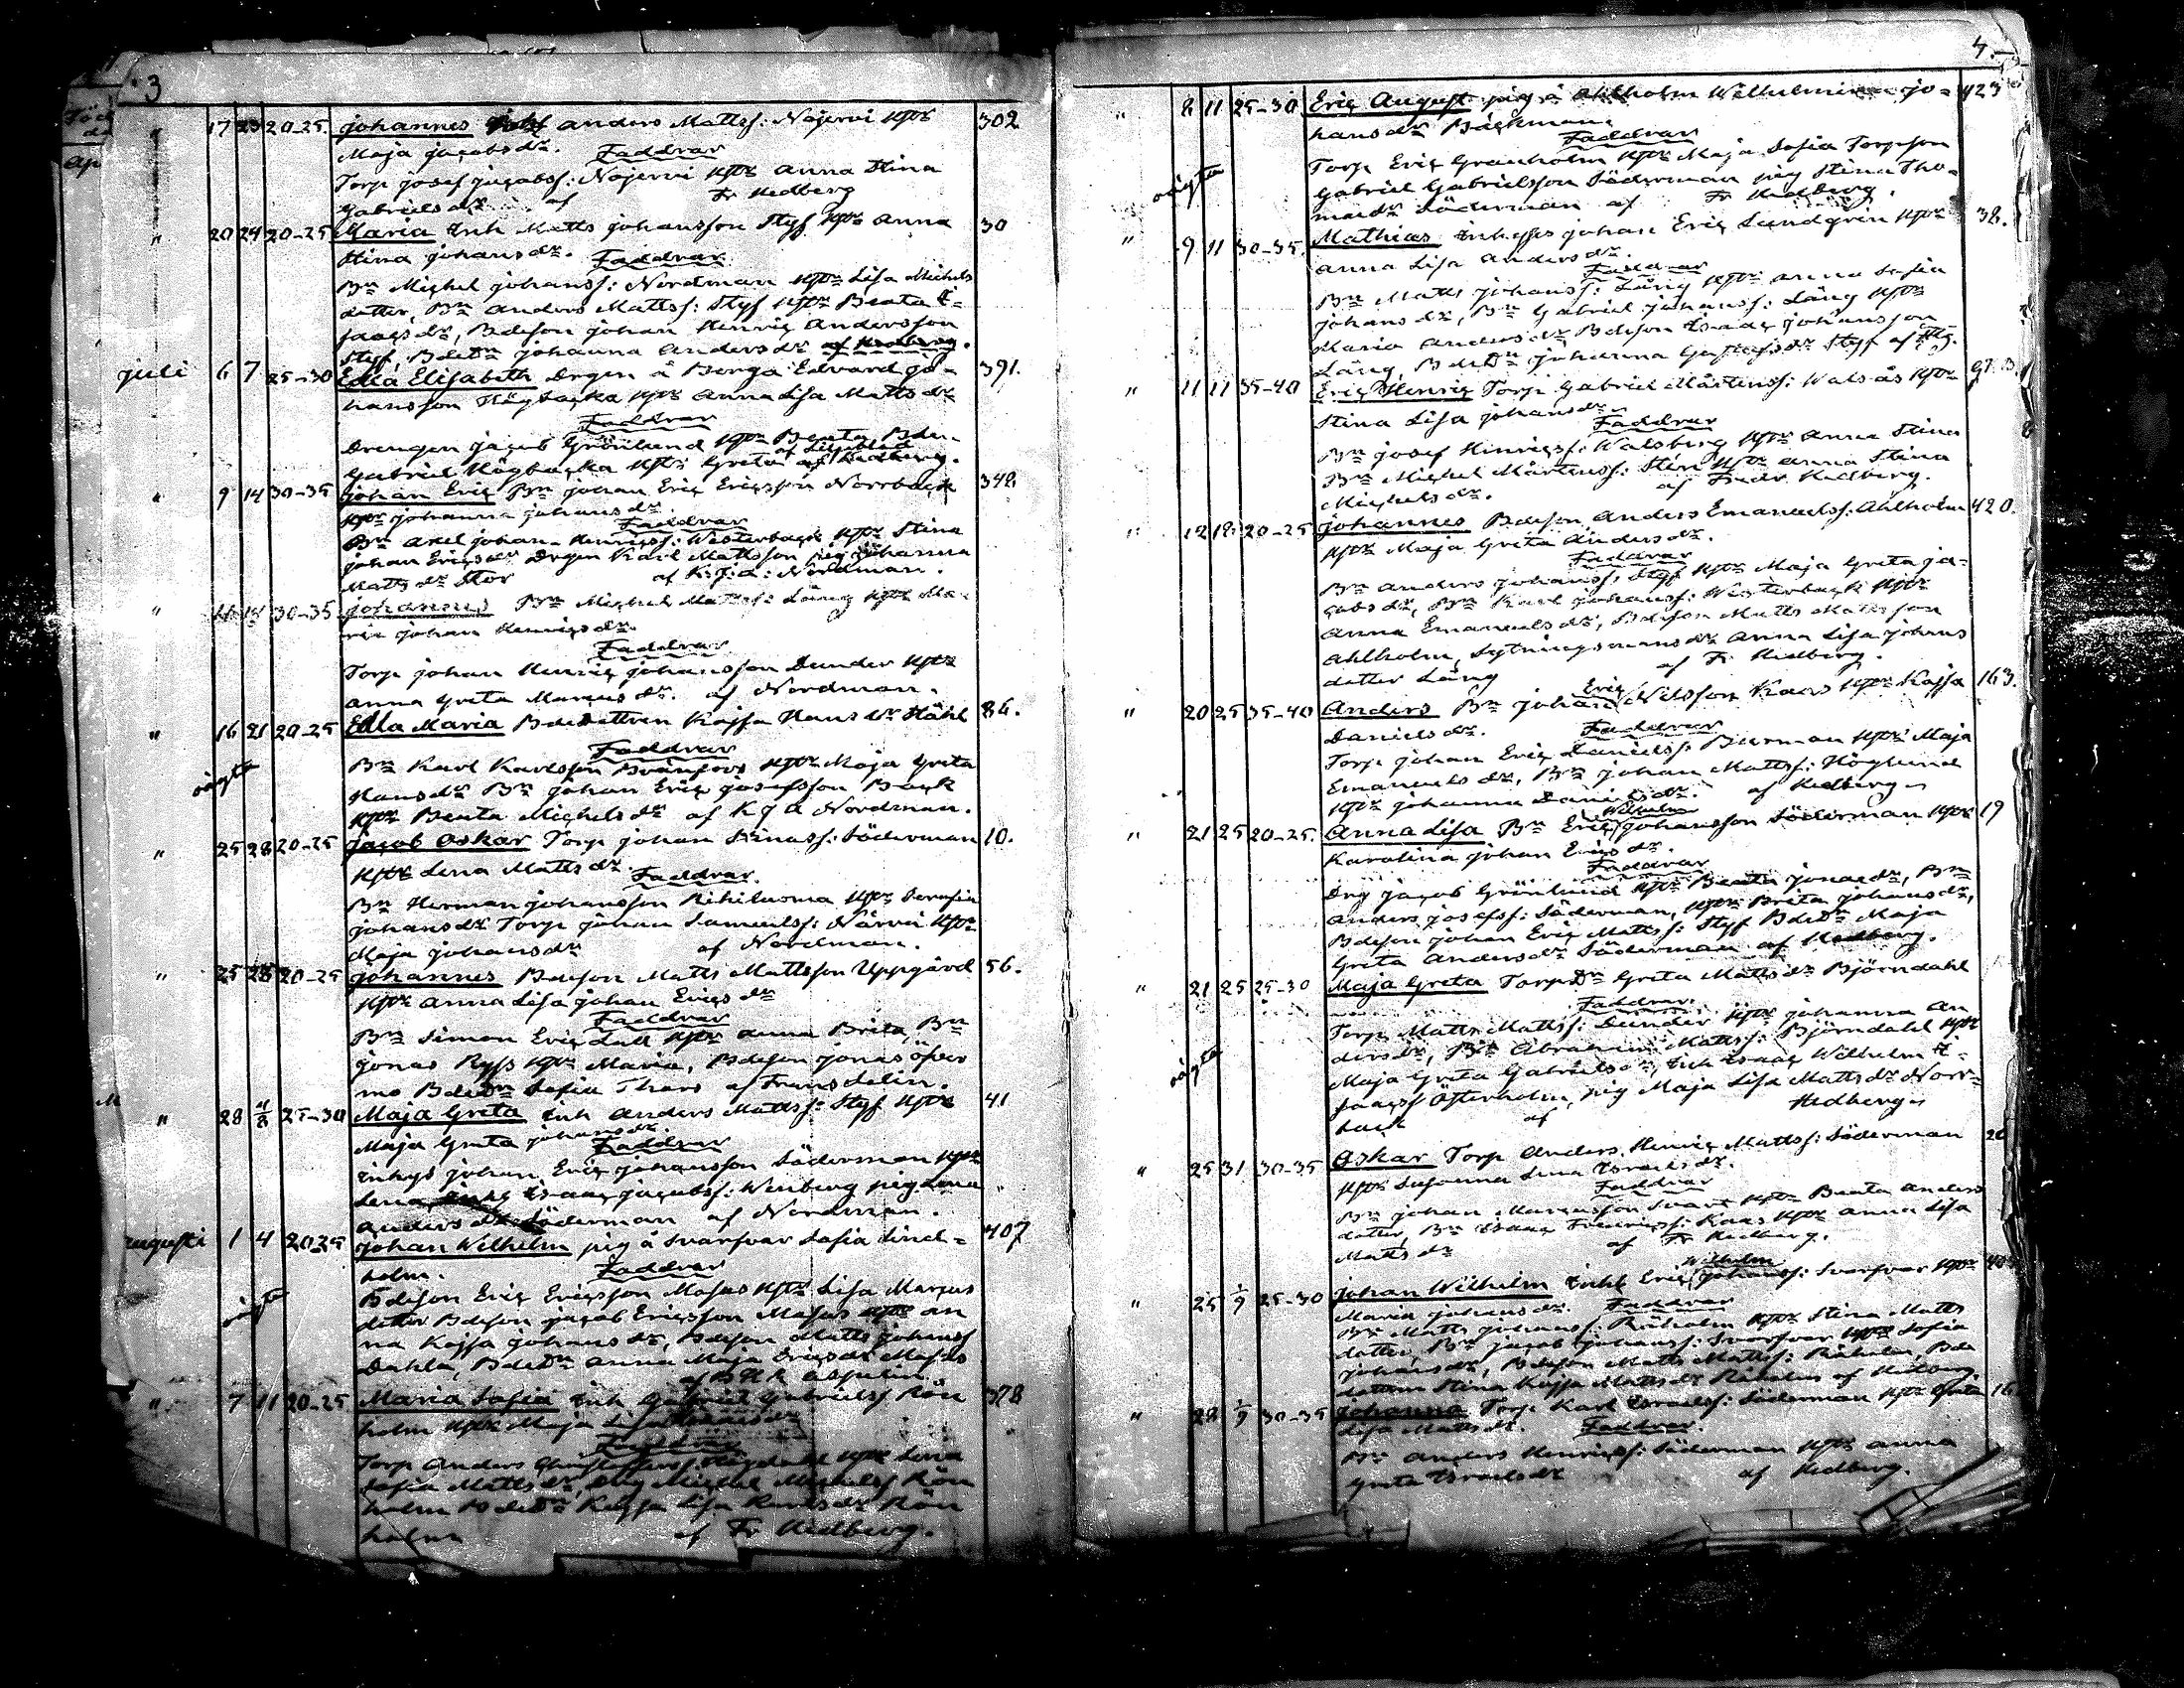 3
" 17 23 20-25. Johannes Anders Mattss: Näjervi Hstr 302
Maja Jacobsdr. Faddrar
Torp Josef Jacobss: Näjervi Hstr Anna Stina
Gabrielsdr af Fr Hedberg
" 20 24 20-25 Maria Inh Matts Johansson Styf Hstr Anna 30
Stina Johansdr. Faddrar
Bn Michel Johanss: Nordman Hstr Lisa Michels
dotter, Bn Anders Mattss: Styf Hstr Beata I-
saacsdr, Bdeson Johan Henric Andersson
Styf, BdeDn Johanna Andersdr af Hedberg.
Juli 6 7 25-30 Edla Elisabeth Drgen å Berga Edvard Jo- 391.
hansson Högbacka Hstr Anna Lisa Mattsdr
Faddrar
Drengen Jacob Grönlund Hstr Beata Bden
af Liljeblad
Gabriel Högbacka Hstr Greta af Hedberg.
" 9 14 30-35 Johan Eric Bn Johan Eric Ericsson Norrback 348
Hstr Johanna Johansdr.
Faddrar
Bn Axel Johan Henricss: Westerback Hstr Stina
Johan Ericsdr Drgen Karl Mattsson pig Johanna
Mattsdr Stor af K.J.A: Nordman.
" 11 14 30-35 Johannes Bn Michel Mattss: Läng Hstr Ma-
ria Johan Henricsdr.
Faddrar
Torp Johan Henric Johansson Dunder Hstr
Anna Greta Marcusdr. af Nordman.
" 16 21 20-25 Edla Maria Bdedottren Kajsa Hansdr Ståhl 84.
Faddrar
oägta
Bn Karl Karlsson Svänfors Hstr Maja Greta
Hansdr Bn Johan Eric Josefsson Back
Hstr Beata Michelsdr af K J A Nordman.
" 25 28 20-25 Jacob Oskar Torp Johan Jonass: Söderman 10.
Hstr Lena Mattsdr. Faddrar.
Bn Herman Johansson Rihiluoma Hstr Serafia
Johansdr Torp Johan Samuelss: Närvi Hstr
Maja Johansdr af Nordman.
" 25 28 20-25 Johannes Bdeson Matts Mattsson Uppgård 56.
Hstr Anna Lisa Johan Ericsdr
Faddrar
Bn Simon Eric Lall Hstr Anna Brita, Bn
Jonas Ryss Hstr Maria, Bdeson Jonas Öfver
mo BdeDn Sofia Thors af Frans Delin.
" 28 4/8 25-30 Maja Greta Inh Anders Mattss: Styf Hstr 41
Maja Greta Johansdr.
Faddrar
Inhys Johan Eric Johansson Söderman Hstr
Lena, Isaac Jacobss: Wenberg pig Lena
Andersdr Söderman af Nordman.
Augusti 1 4 20-25 Johan Wilhelm pig å Svarfvar Sofia Lind- 407
holm. Faddrar
oägta
Bdeson Eric Ericsson Masus Hstr Lisa Marcus
dotter Bdeson Jacob Ericsson Masus Hstr An
na Kajsa Johansdr, Bdeson Matts Johanss
Dahla, BdeDn Anna Maja Ericsdr Masus
" 7 11 20-25 Maria Sofia Inh Gabriel Gabrielss Rön 378
holm Hstr Maja
Faddrar
Torp Anders Hstr Lena
Sofia Mattsdr, Drg Michel Michelss Rön
holm BdeDn Kajsa Lisa Karlsdr Rön
holm af Fr Hedberg.
4.
" 8 11 25-30 Eric August pig å Ahlholm Wilhelmina Jo- 423
hansdr Backman.
Faddrar
oägta
Torp Eric Granholm Hstr Maja Sofia Torpson
Gabriel Gabrielsson Söderman pig Stina Tho-
masdr Söderman af Fr Hedberg.
" 9 11 30-35. Mathias Inhyses Johan Eric Lundgren Hstr 38.
Anna Lisa Andersdr.
Faddrar
Bn Matts Johanss: Läng Hstr Anna Sofia
Johansdr, Bn Gabriel Johanss: Läng Hstr
Maria Andersdr Bdeson Isaac Johansson
Läng, BdeDn Johanna Gustafsdr Styf af Hbg.
" 11 11 35-40 Eric Henric Torp Gabriel Mårtenss: Walsås Hstr
Stina Lisa Johansdr.
Faddrar
Bn Josef Henricss: Walsberg Hstr Anna Stina
Bn Michel Mårtenss: Sten Hstr Anna Stina
Michelsdr. af Fredr Hedberg.
" 12 18 20-25 Johannes Bdeson Anders Emanuelss: Ahlholm 420.
Hstr Maja Greta Andersdr.
Faddrar
Bn Anders Johanss: Styf Hstr Maja Greta Ja-
cobsdr, Bn Karl Johanss: Westerback Hstr
Anna Emanuelsdr, Bdeson Matts Mattsson
Ahlholm, Sytningsmansdr Anna Lisa Johans
dotter Läng af Fr Hedberg.
Eric
" 20 25 35-40 Anders Bn Johan Nilsson Kaas Hstr Kajsa 163.
Danielsdr. Faddrar
Torp Johan Eric Danielss: Burman Hstr Maja
Emanuelsdr, Bn Johan Mattss: Höglund
Hstr Johanna Danielsdr. af Hedberg
Wilhelm
" 21 25 20-25. Anna Lisa Bn Eric Johansson Söderman Hstr 19
Karolina Johan Ericsdr.
Faddrar
Drg Jacob Grönlund Hstr Beata Jonasdr, Bn
Anders Josefss: Söderman, Hstr Brita Johansdr,
Bdeson Johan Eric Mattss: Styf BdeDn Maja
Greta Andersdr Söderman af Hedberg.
" 21 25 25-30 Maja Greta TorpDn Greta Mattsdr Björndahl
Faddrar.
oägta
Torp Matts Mattss: Dunder Hstr Johanna An
dersdr, Bn Abraham Mattss: Björndahl Hstr
Maja Greta Gabrielsdr, Inh Isaac Wilhelm I-
saacss Österholm, pig Maja Lisa Mattsdr Norr-
back af Hedberg
" 25 31 30-35 Oskar Torp Anders Henric Mattss: Söderman
Hstr Susanna Lena Israelsdr.
Faddrar
Bn Johan Marcusson Svart Hstr Beata Anders
dotter, Bn Isaac Fredricss: Kaas Hstr Anna Lisa
Mattsdr af Fr Hedberg.
Wilhelm
" 25 1/9 25-30 Johan Wilhelm Inh Eric Johanss: Svarfvar Hstr
Maria Johansdr. Faddrar
Bn Matts Johanss: Räholm Hstr Stina Matts
dotter, Bn Jacob Johanss: Svarfvar Hstr Sofia
Johansdr, Bdeson Matts Mattss: Räholm, Bde
dottern Stina Kajsa Mattsdr Räholm af Hedberg
" 28 1/9 30-35 Johanna Torp Karl Israelss: Söderman Hstr Greta
Lisa Mattsdr. Faddrar.
Bn Anders Henricss: Söderman Hstr Anna
Greta Israelsdr af Hedberg.